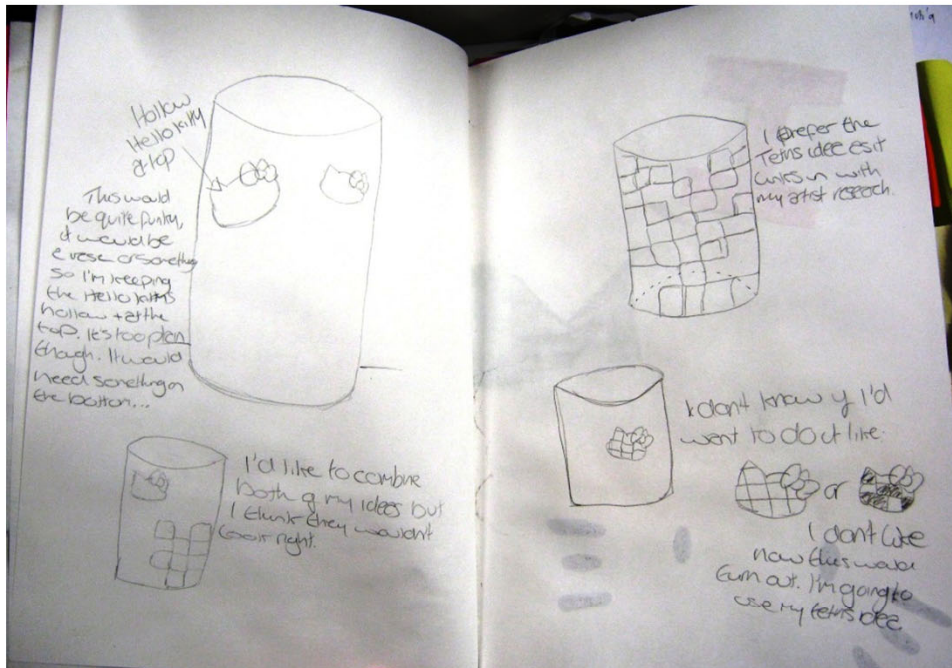 Hollow
Hello kitty
@ top
This would
be quite funky,
it would be
a vase or something
so I'm keeping
the Hello kittys
hollow + at the
top. It's too plain
though. It would
need something on
the bottom...
I'd like to combine
both of my ideas but
I think they wouldn't
look right.
I prefer the
Tetris idea as it
links in with
my artist research.
I dont know if I'd
want to do it like:
or
I dont like
how this would
turn out. I'm going to
use my tetris idea